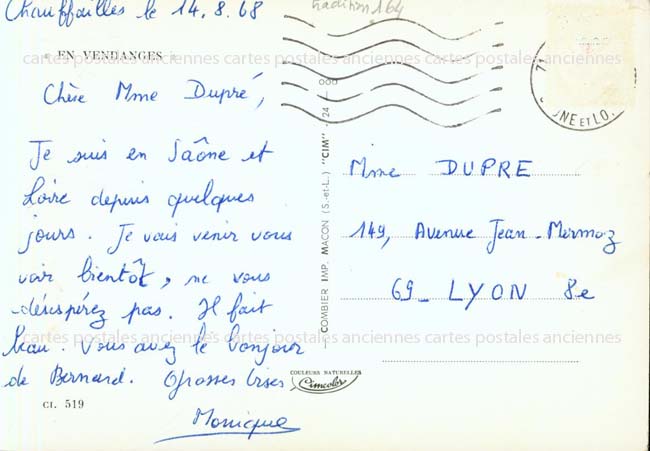 Chauffailles le 14.8.68
tradition 164
EN VENDANGES
cartes postales anciennes cartes postales anciennes cartes postales anciennes
Chère Mme Dupré,
Je suis en Saône et
Loire depuis quelques
jours. Je vais venir vous
voir bientôt, ne vous
désespérez pas. Il fait
beau. Vous avez le bonjour
de Bernard. Grosses bises
Monique
CL 519
COMBIER IMP. MACON (S.-et-L.) "CIM"
COULEURS NATURELLES
Cimcolor
71
NE ET LO.
Mme DUPRE
149, Avenue Jean-Mermoz
69_ LYON 8e
cartes postales anciennes cartes postales anciennes cartes postales anciennes